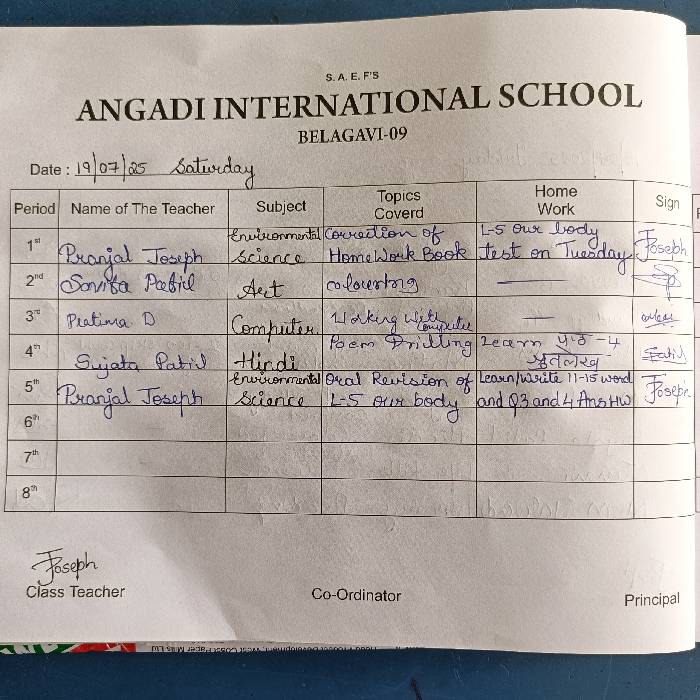 S. A. E. F'S
ANGADI INTERNATIONAL SCHOOL
BELAGAVI-09
Date : 19/07/25 Saturday
Period Name of The Teacher Subject Topics Coverd Home Work Sign
1st Pranjal Joseph Environmental Science Correction of HomeWork Book L-5 Our body test on Tuesday Joseph
2nd Savita Patil Art colouring —
3rd Pratima D Computer Working With Computer —
4th Sujata Patil Hindi Poem Drilling Learn पाठ-4 श्रुतलेख Patil
5th Pranjal Joseph Environmental Science Oral Revision of L-5 our body Learn/Write 11-15 word and Q3 and 4 Ans HW Joseph
6th
7th
8th
Joseph
Class Teacher Co-Ordinator Principal